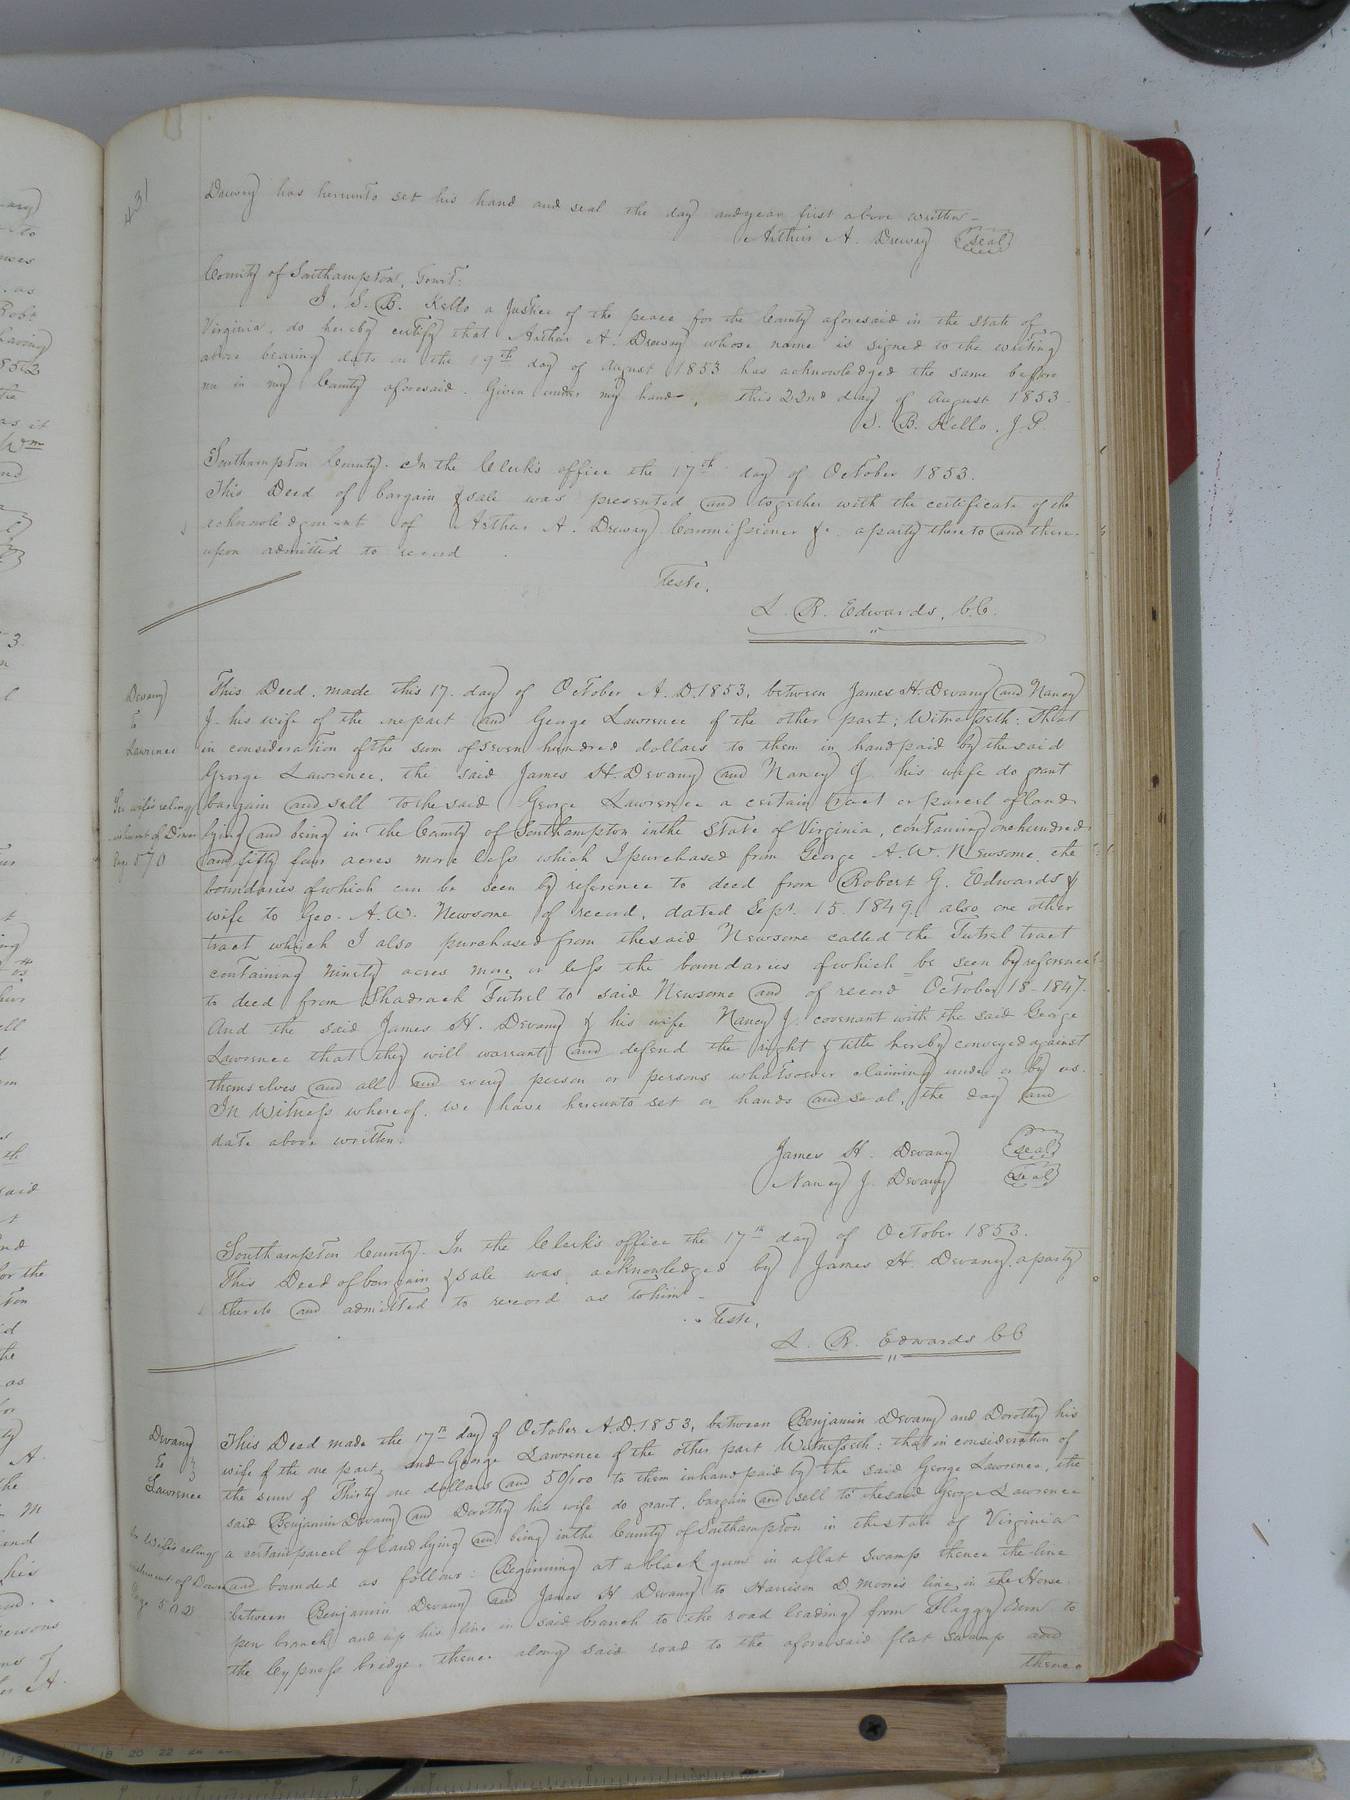 431
Drewry has hereunto set his hand and seal the day and year first above written -
Arthur A. Drewry (seal)
County of Southampton, Towit:
I, S. B. Kello a Justice of the peace for the County aforesaid in the State of
Virginia, do hereby certify that Arthur A. Drewry whose name is signed to the writing
above bearing date on the 19th day of August 1853 has acknowledged the same before
me in my County aforesaid. Given under my hand, this 22nd day of August 1853.
S. B. Kello, J.P.
Southampton County. In the Clerk's office the 17th day of October 1853.
This Deed of bargain & sale was presented and together with the certificate of the
acknowledgement of Arthur A. Drewry Commissioner &c. a party thereto and there-
upon admitted to record
Teste,
L. R. Edwards, C.C.
Devany
to
Lawrence
This Deed, made this 17. day of October A.D. 1853, between James H. Devany and Nancy
J. his wife of the one part and George Lawrence of the other part; Witnesseth: That
in consideration of the sum of seven hundred dollars to them in hand paid by the said
George Lawrence, the said James H. Devany and Nancy J. his wife do grant
bargain and sell to the said George Lawrence a certain tract or parcel of land
lying and being in the County of Southampton in the State of Virginia, containing one hundred
and fifty four acres more less which I purchased from George A. W. Newsome, the
boundaries of which can be seen by reference to deed from Robert G. Edwards &
wife to Geo. A. W. Newsome of record, dated Sept. 15. 1849, also one other
tract which I also purchased from the said Newsome called the Futrel tract
containing ninety acres more or less the boundaries of which be seen by reference
to deed from Shadrack Futrel to said Newsome and of record October 18 - 1847.
And the said James H. Devany & his wife Nancy J. covenant with the said George
Lawrence that they will warrant and defend the right & title hereby conveyed against
themselves and all and every person or persons whatsoever claiming under or by us.
In Witness whereof, we have hereunto set our hands and seal, the day and
date above written.
In wife's relinq
uishment of Dower
Page 570
James H. Devany (seal)
Nancy J. Devany (seal)
Southampton County. In the Clerk's office the 17th day of October 1853.
This Deed of bargain & sale was acknowledged by James H. Devany, a party
thereto and admitted to record as to him -
Teste,
L. R. Edwards CC
Devany
to
Lawrence
This Deed made the 17th day of October A.D. 1853, between Benjamin Devany and Dorothy his
wife of the one part, and George Lawrence of the other part Witnesseth: that in consideration of
the sum of Thirty one dollars and 50/100 to them in hand paid by the said George Lawrence, the
said Benjamin Devany and Dorothy his wife do grant, bargain and sell to the said George Lawrence
a certain parcel of land lying and being in the County of Southampton in the state of Virginia
and bounded as follows: Beginning at a black gum in a flat swamp thence the line
between Benjamin Devany and James H Devany to Harrison D. Moore's line in the Horse
pen branch, and up his line in said branch to the road leading from Flaggy Run to
the Cypress bridge, thence along said road to the aforesaid flat swamp and
thence
In Wife's relinq
uishment of Dower
Page 502